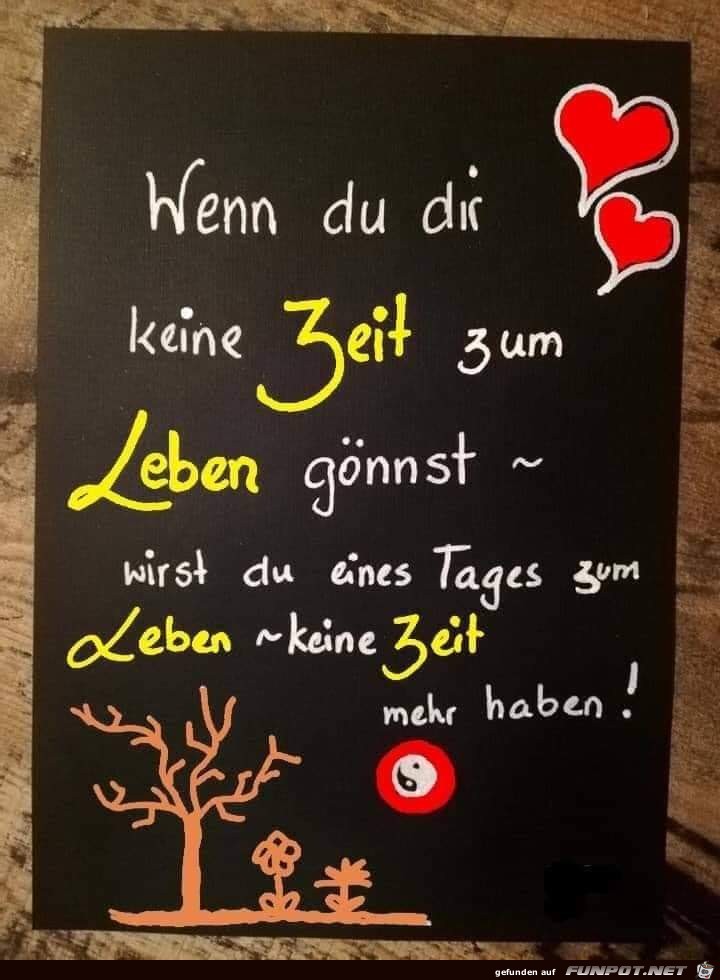 Wenn du dir
keine Zeit zum
Leben gönnst ~
wirst du eines Tages zum
Leben ~ keine Zeit
mehr haben!
gefunden auf FUNPOT.NET